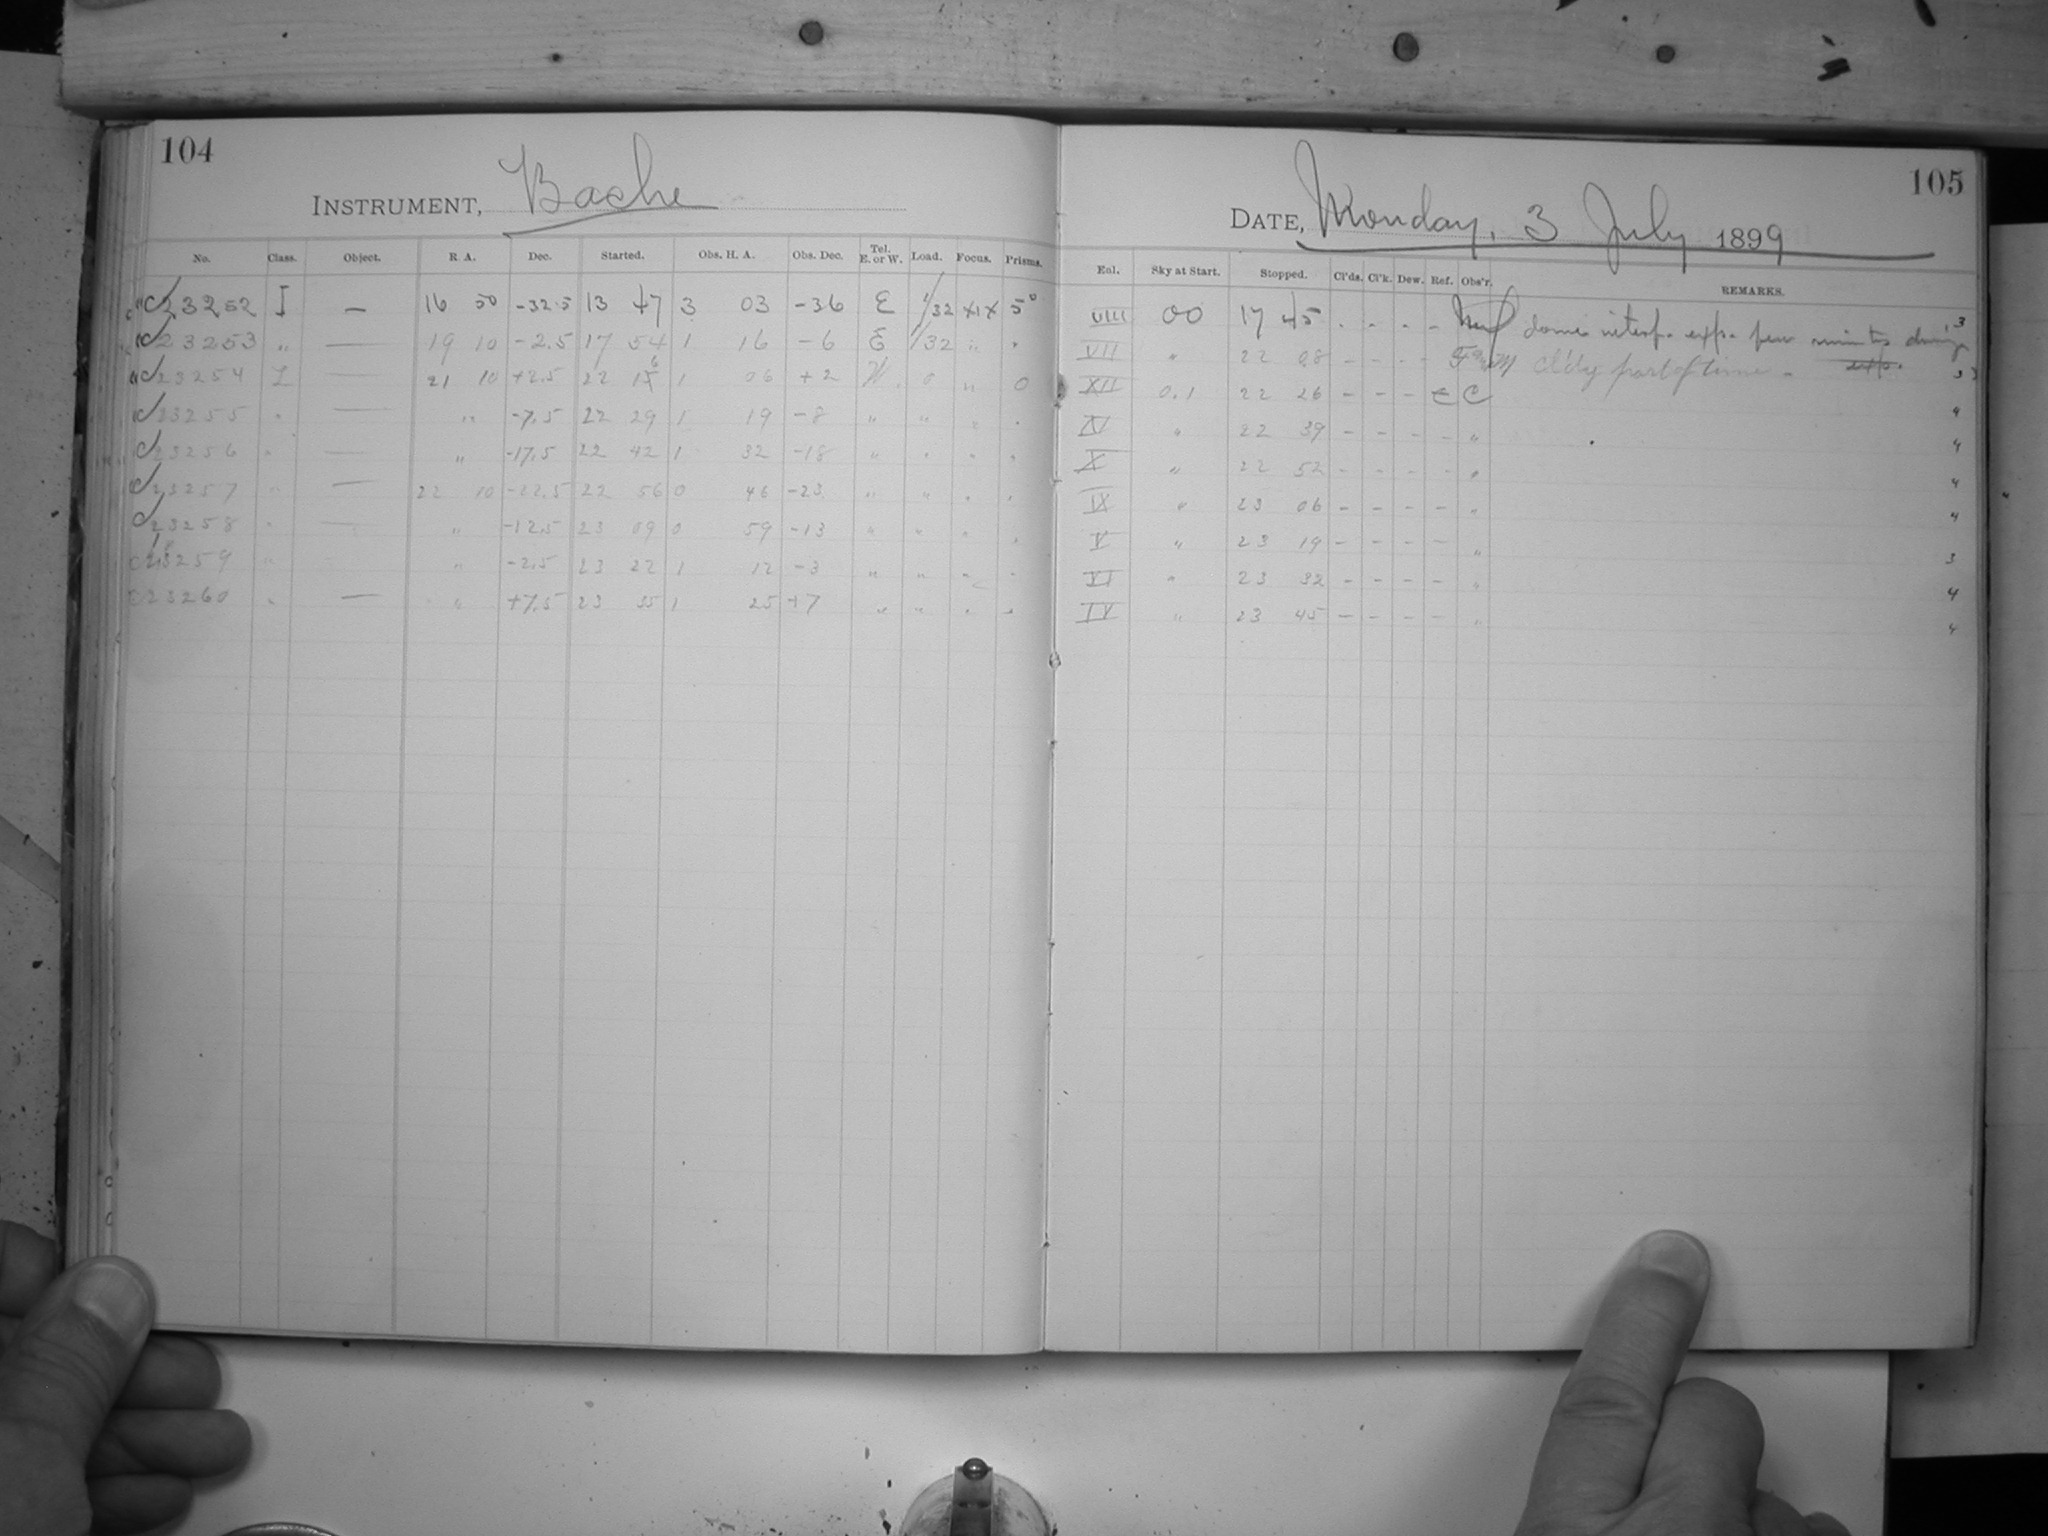 104
INSTRUMENT, Bache
No. Class. Object. R. A. Dec. Started. Obs. H. A. Obs. Dec. Tel. E. or W. Load. Focus. Prisms.
23252 I — 16 50 -32.5 13 47 3 03 -36 E 1/32 XIX 5°
23253 " — 19 10 -2.5 17 54 1 16 -6 E 1/32 " "
23254 — 21 10 +2.5 22 16 1 06 +2 W. 0 " 0
23255 " — " -7.5 22 29 1 19 -8 " " " "
23256 " — " -17.5 22 42 1 32 -18 " " " "
23257 " — 22 10 -22.5 22 56 0 46 -23 " " " "
23258 " — " -12.5 23 09 0 59 -13 " " " "
23259 " — " -2.5 23 22 1 12 -3 " " " "
23260 " — " +7.5 23 35 1 25 +7 " " " "
105
DATE, Monday, 3 July 1899
Enl. Sky at Start. Stopped. Cl'ds. Cl'k. Dew. Ref. Obs'r. REMARKS.
VIII 00 17 45 - - - - dome interf. exp. few minutes during exp. 3
VII " 22 08 - - - - Cl'dy part of time. 3
XII 0.1 22 26 - - - C 4
IV " 22 39 - - - - " 4
X " 22 52 - - - - " 4
IX " 23 06 - - - - " 4
V " 23 19 - - - - " 3
VI " 23 32 - - - - " 4
IV " 23 45 - - - - " 4